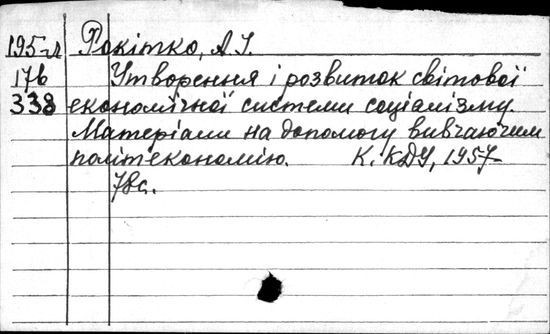 195-л Рокітко, А.І.
176 Утворення і розвиток світової
338 економічної системи соціалізму.
Матеріали на допомогу вивчаючим
політекономію. К. КДУ, 1957
78с.